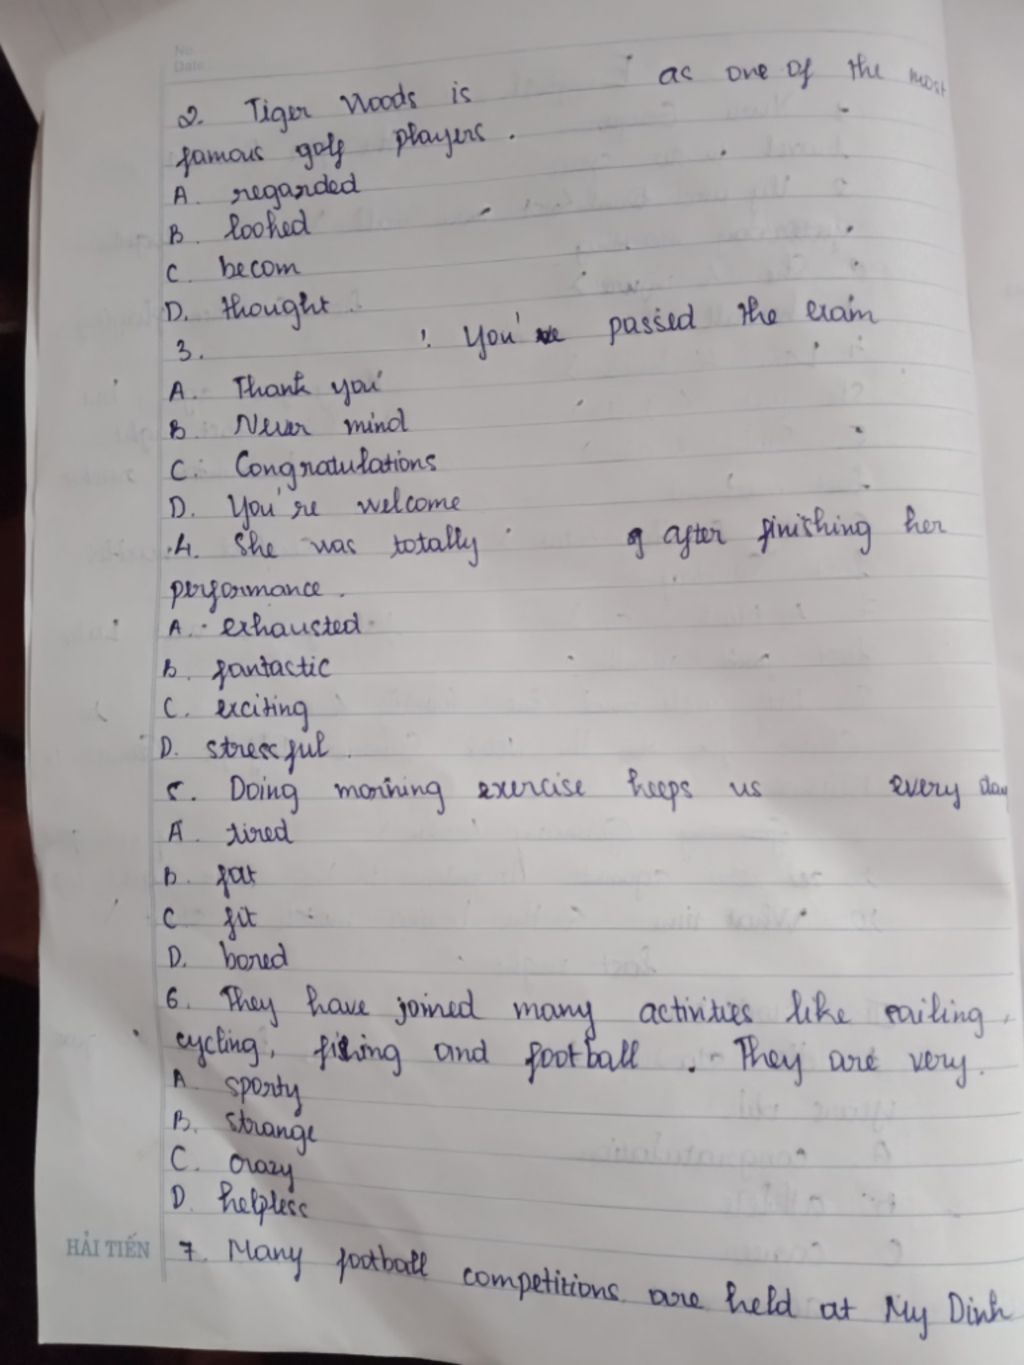 No
Date
2. Tiger Woods is as one of the most
famous golf players.
A. regarded
B. looked
C. becom
D. thought.
3. ! You've passed the exam
A. Thank you
B. Never mind
C. Congratulations
D. You're welcome
4. She was totally after finishing her
performance.
A. exhausted
B. fantastic
C. exciting
D. stressful.
5. Doing morning exercise keeps us every day
A. tired
B. fat
C. fit
D. bored
6. They have joined many activities like sailing,
cycling, fishing and football. They are very.
A. sporty
B. strange
C. crazy
D. helpless
HẢI TIẾN
7. Many football competitions are held at My Dinh